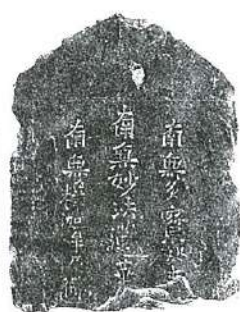 南無多寳如来
南無妙法蓮華
南無釋迦牟尼佛